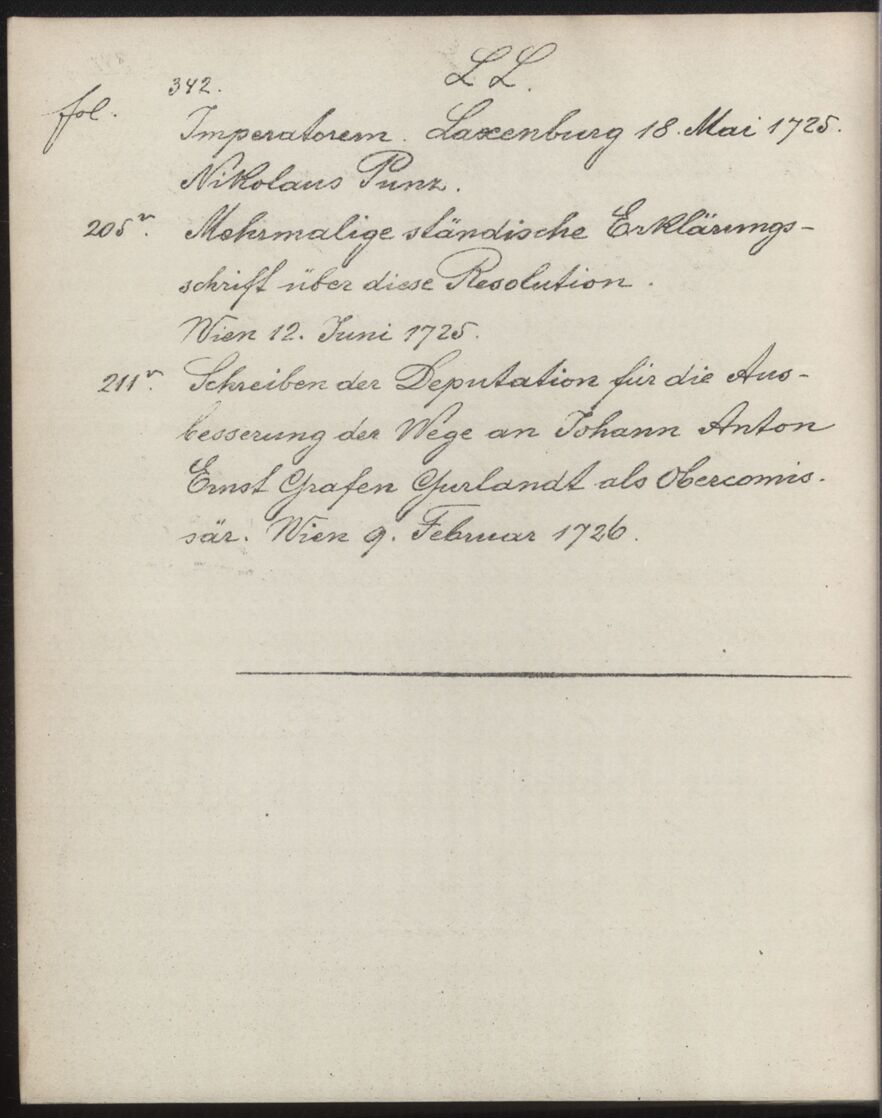 342.
L L.
fol.
Imperatorem. Laxenburg 18. Mai 1725.
Nikolaus Punz.
205r. Mehrmalige ständische Erklärungs-
schrift über diese Resolution.
Wien 12. Juni 1725.
211r. Schreiben der Deputation für die Aus-
besserung der Wege an Johann Anton
Ernst Grafen Gurlandt als Obercomis-
sär. Wien 9. Februar 1726.